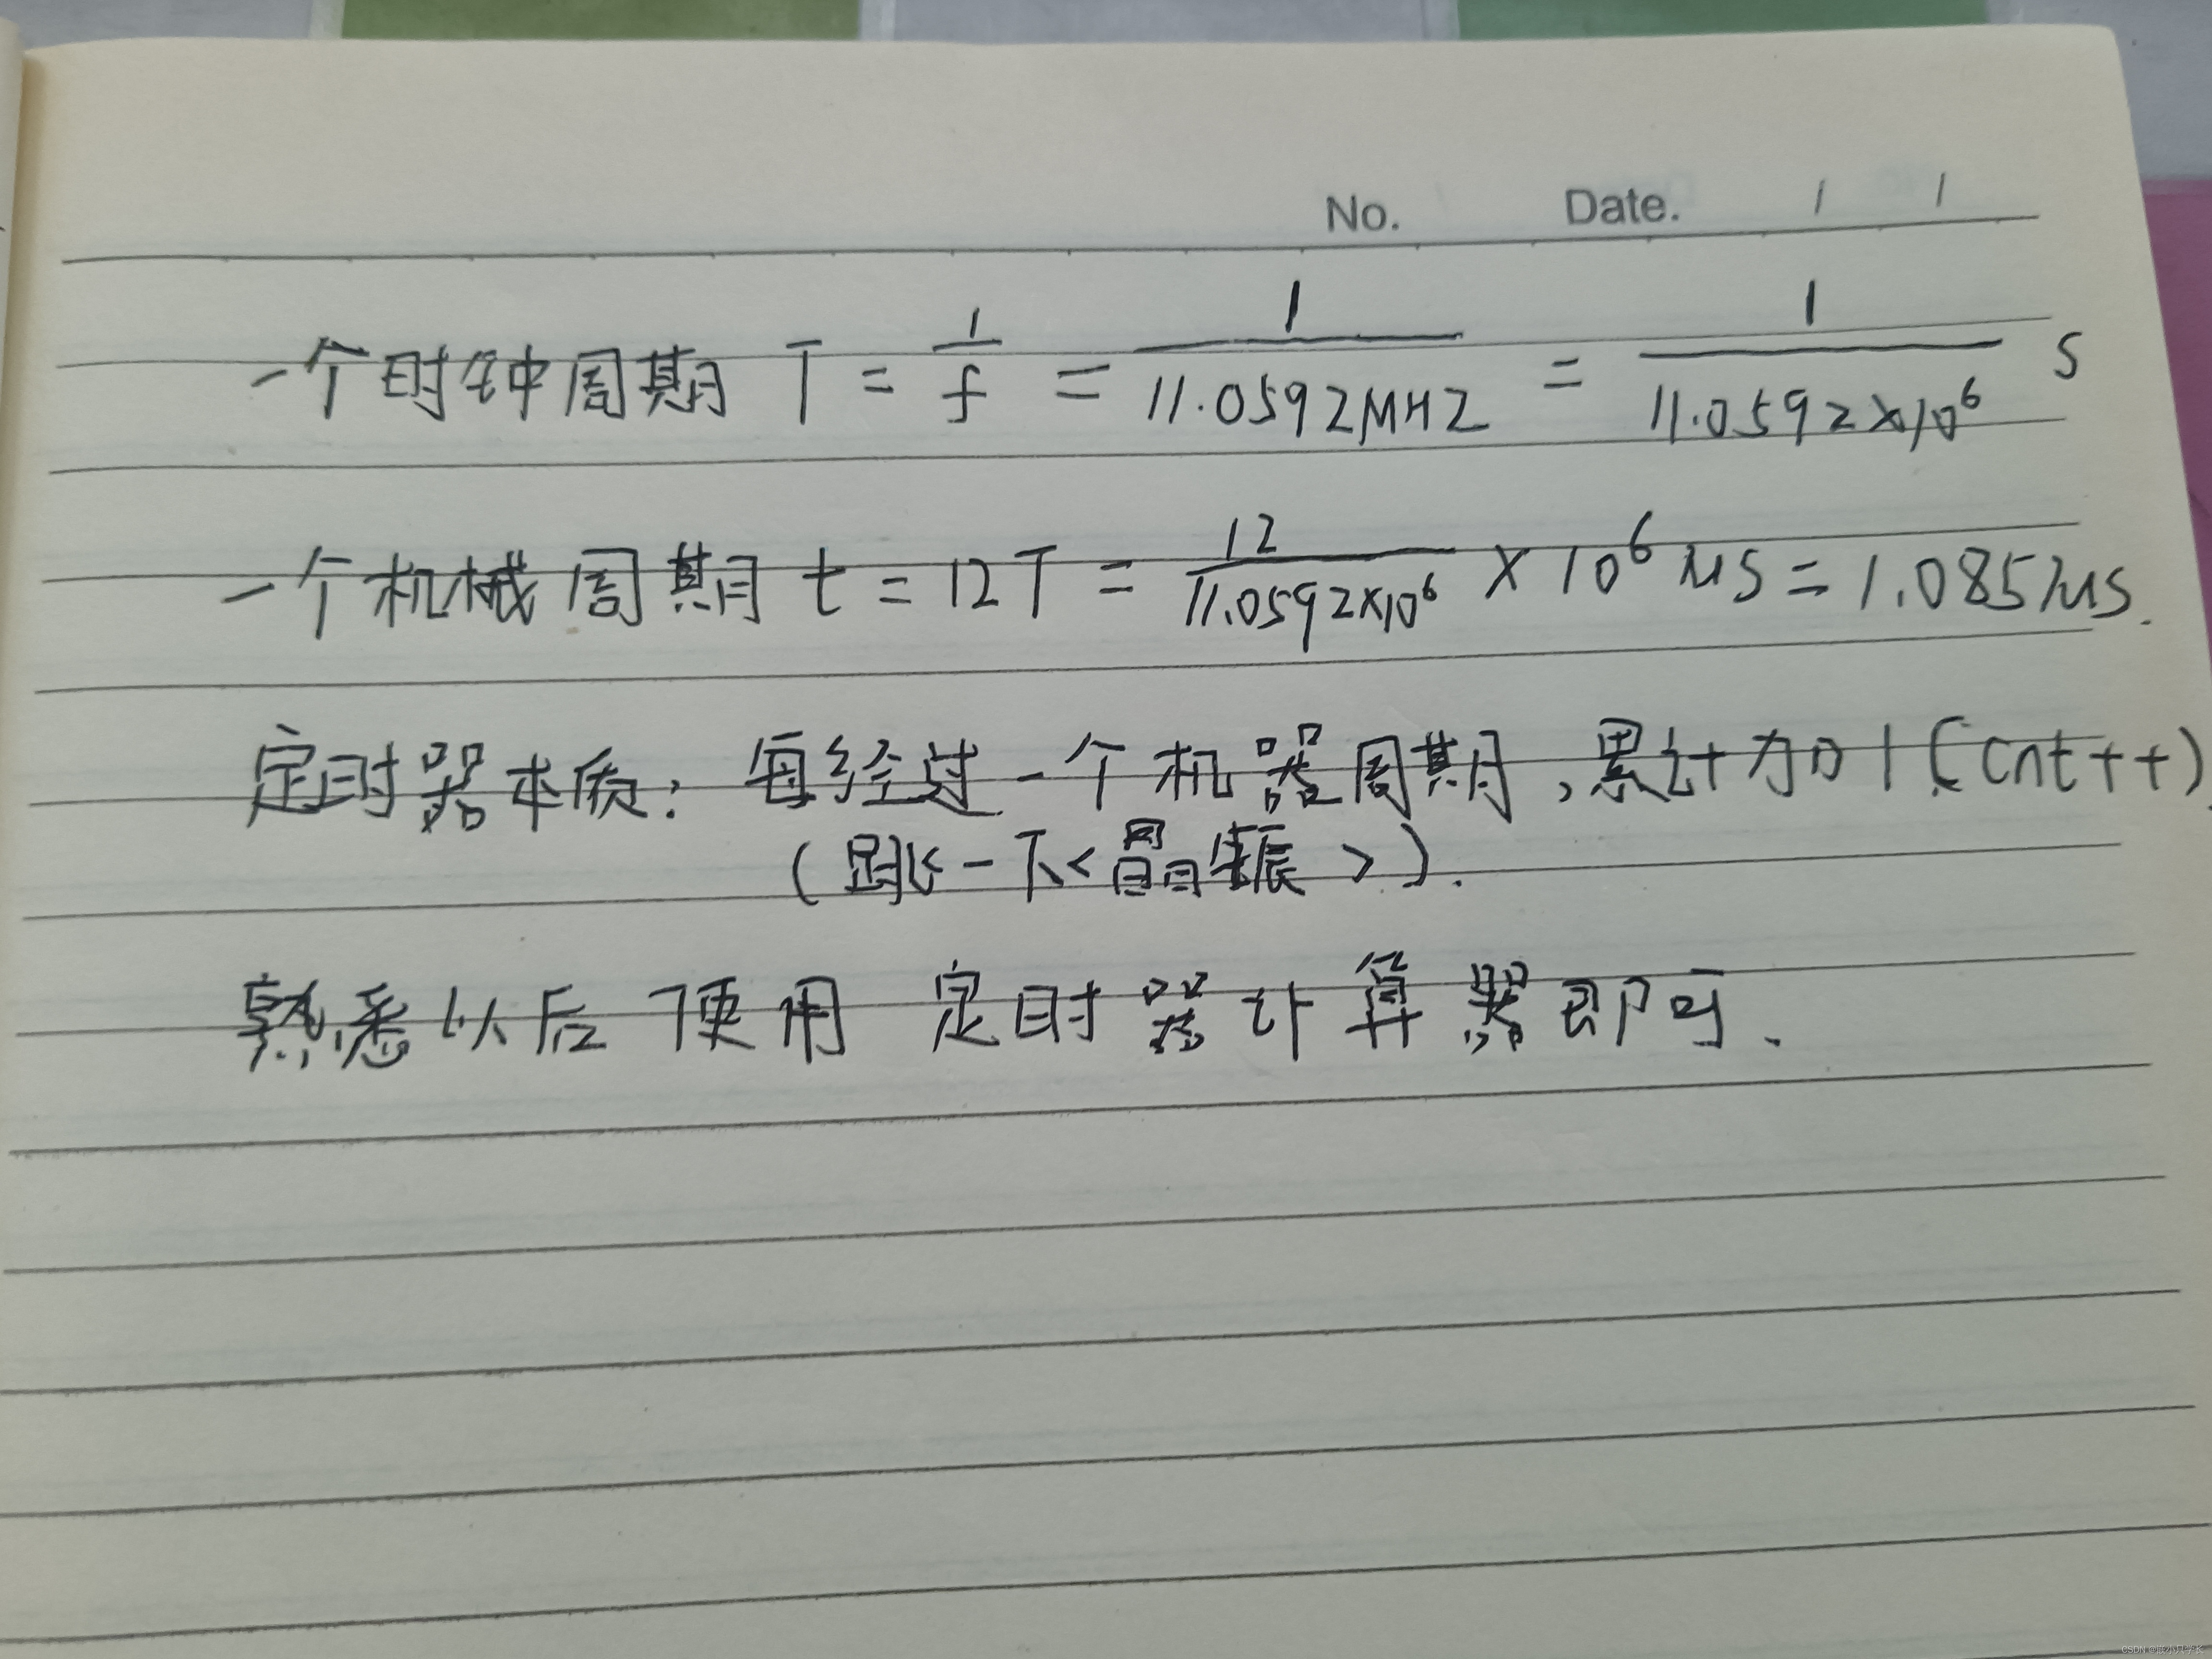 No. Date. / /
一个时钟周期 T = 1/f = 1/11.0592MHZ = 1/11.0592×10⁶ S
一个机械周期 t = 12T = 12/11.0592×10⁶ × 10⁶ μS = 1.085μS.
定时器本质: 每经过一个机器周期,累计加1(cnt++).
(跳一下<晶振>).
熟悉以后便用 定时器计算器即可.